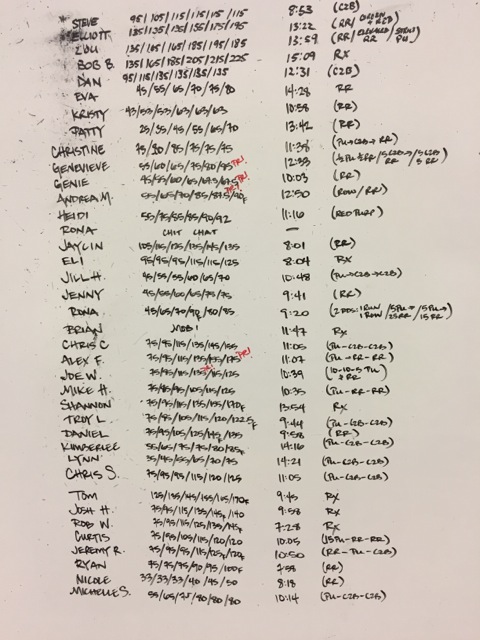 STEVE 95/105/115/115/115/115 8:53 (C2B)
ELLIOTT 135/135/135/155/175/195 13:22
LULI 135/145/165/185/195/185 13:59
BOB B. 135/165/185/205/215/225 15:09 RX
DAN 95/115/135/135/135/135 12:31 (C2B)
EVA 45/55/65/70/75/80 14:28 RR
KRISTY 43/53/53/63/63/63 10:58 (RR)
PATTY 25/35/45/55/65/70 13:42 (RR)
CHRISTINE 75/70/85/75/75/75 11:38 (PU→C2B→RR)
GENEVIEVE 55/60/65/75/80/85 PR! 12:53
GENIE 45/55/60/65/67.5/67.5 PR! 10:03 (RR)
ANDREA M. 55/65/70/85/87.5/90F 12:50 (ROW/RR)
HEIDI 55/75/85/85/90/92 11:16
RONA CHIT CHAT —
JAYLIN 105/115/125/135/145/135 8:01 (RR)
ELI 95/95/95/115/115/125 8:04 RX
JILL H. 45/55/55/60/65/70 10:48 (PU→C2B→C2B)
JENNY 45/55/60/65/75/75 9:41 (RR)
RONA 45/65/70/90/80/85 9:20
BRIAN MOBI 11:47 RX
CHRIS C 75/95/115/135/145/155 11:05 (PU-C2B-C2B)
ALEX F. 75/95/115/135/155/175 PR! 11:07 (PU→RR-RR)
JOE W. 75/95/115/135/115/125 10:39 (10-10-5 PU + RR)
MIKE H. 75/85/95/105/115/125 10:35 (PU-RR-RR)
SHANNON 75/95/115/135/155/170F 13:54 RX
TROY L 75/85/105/115/120/122.5F 9:44 (PU-C2B-C2B)
DANIEL 75/95/105/125/145F/135 9:58 (RR)
KIMBERLEE 55/65/75/75/80/85F 14:16 (PU-C2B-C2B)
LYNN 35/45/55/65/70/75 14:21 (PU-C2B-C2B)
CHRIS S. 75/95/95/115/120/125 11:05 (PU-C2B-C2B)
TOM 125/135/145/155/165/170F 9:45 RX
JOSH H. 75/95/115/135/145F/140 9:58 RX
ROB W. 75/95/115/125/135/145F 7:28 RX
CURTIS 75/85/105/115/120/120 10:05 (15PU-RR-RR)
JEREMY R. 75/95/95/115/125F/120F 10:50 (RR-PU-C2B)
RYAN 75/75/75/90/95/100F 7:58 (RR)
NICOLE 33/33/33/40/45/50 8:18 (RR)
MICHELLE S. 55/65/75/80/80/80 10:14 (PU-C2B-C2B)